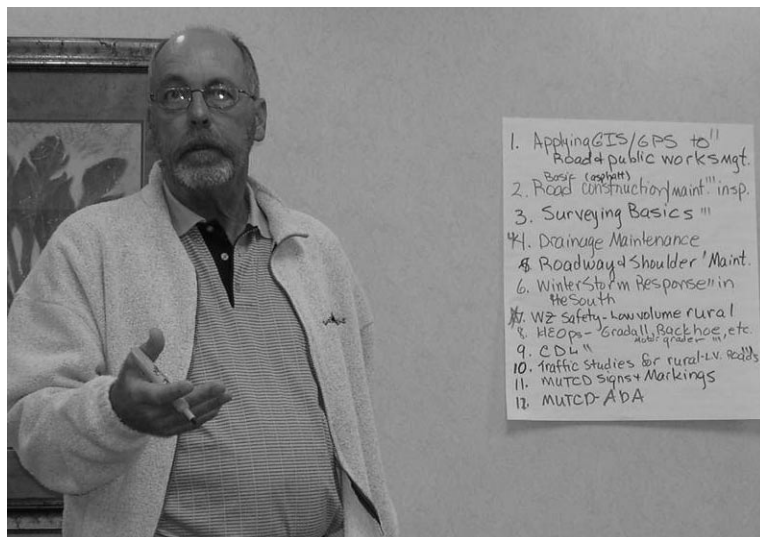 1. Applying GIS/GPS to "
Road & public works Mgt.
Basic (asphalt)
2. Road construction/maint. ''' insp.
3. Surveying Basics '''
4. Drainage Maintenance
5. Roadway & Shoulder ' Maint.
6. Winter Storm Response '' in
the South
7. WZ Safety - Low volume rural
8. HEOps - Gradall, Backhoe, etc.
Motor grader '''
9. CDL "
10. Traffic Studies for rural-L.V. Roads "
11. MUTCD Signs + Markings
12. MUTCD - ADA